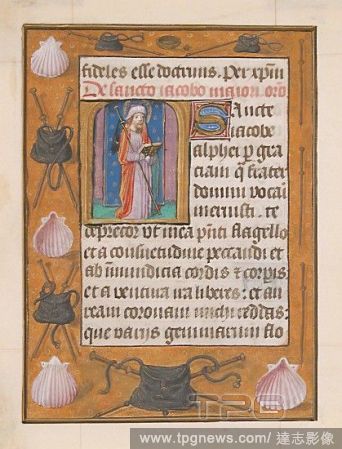 fideles esse doctrinis. Per xp̄m
De sancto iacobo maiori. orō
Sancte
iacobe
alphei p̱ gra
ciam q̄ frater
domini vocari
meruisti. te
deprecor ut in ea p̄nti flagello
et a consuetudine peccandi et
ab īmundicia cordis ⁊ corpis
et a ventura ira liberes: et au
ream coronam michi reddas:
que variis gemmarum flo
TPG
www.tpgnews.com/ 達志影像